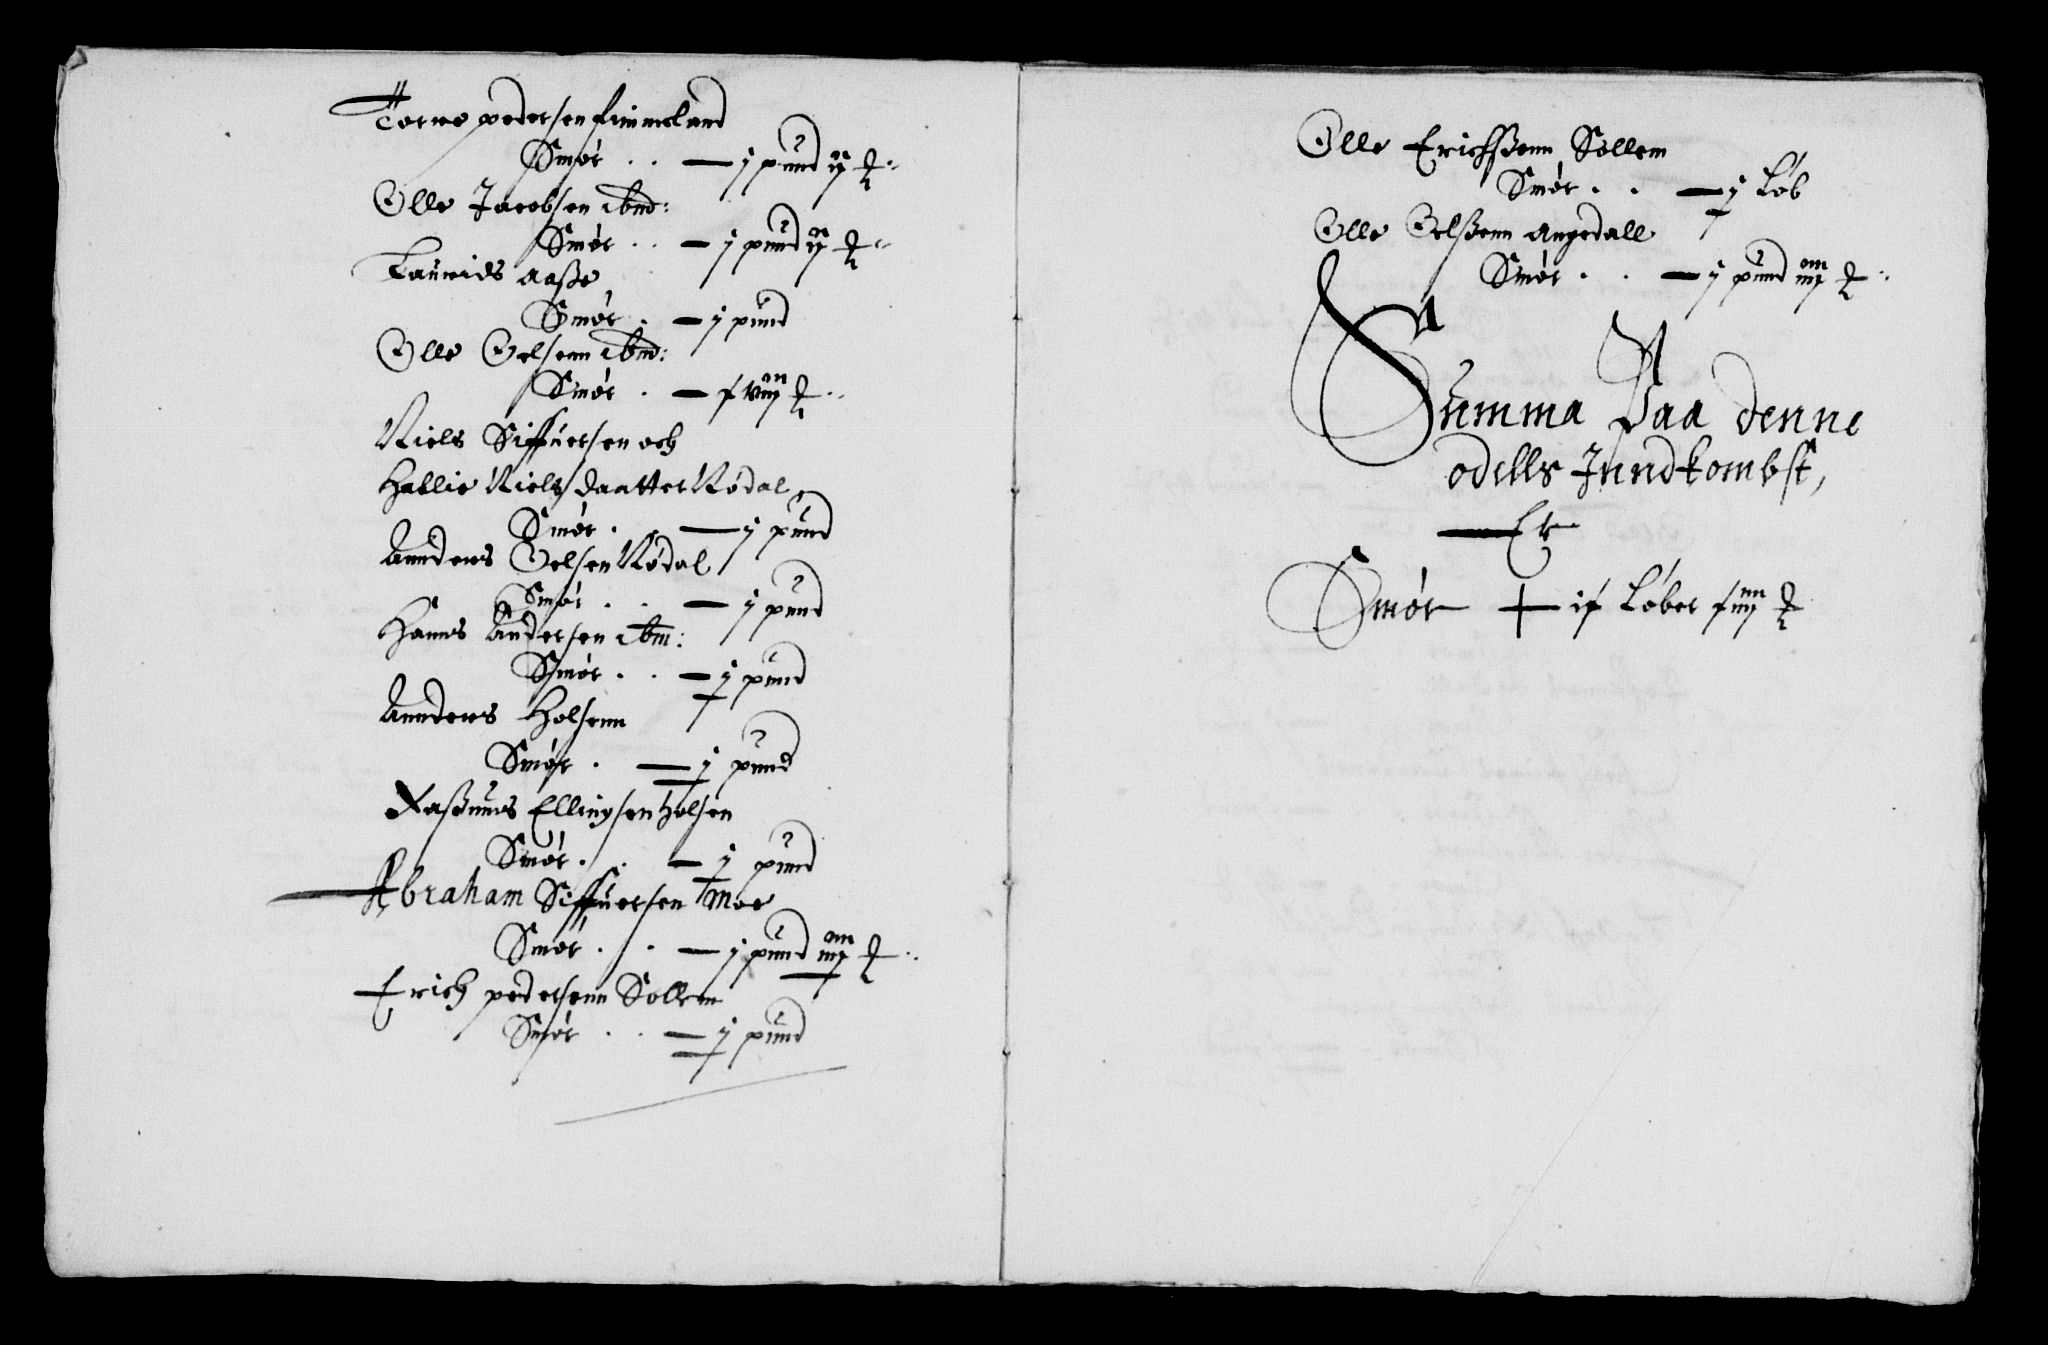 Torne pedersen fimmeland
Smør . . — j pund ij ₰
Olle Jacobsen ibm:
Smør . . — j pund ij ₰
Laurids Aaße
Smør . — j pund
Olle Oelsenn ibm:
Smør . — f viij ₰
Niels Siffuersen och
Hallie Niels daatter Rødal
Smør . — j pund
Anders Oelsen Rødal
Smør . . — j pund
Hanns Andersen ibm:
Smør . . — j pund
Annders Holsenn
Smør . — j pund
Raßmus Ellingsen Holsen
Smør . . — j pund
Abraham Siffuersen Moe
Smør . . — j pund iiij ₰
Erich pedersenn Sollem
Smør . . — j pund
Olle Erichßenn Søllem
Smør . . — j Løb
Olle Oelßenn Angedall
Smør . . — j pund iiij ₰
Summa Paa denne
odells Jnndkombst,
— Er —
Smør — if Løber f iiij ₰